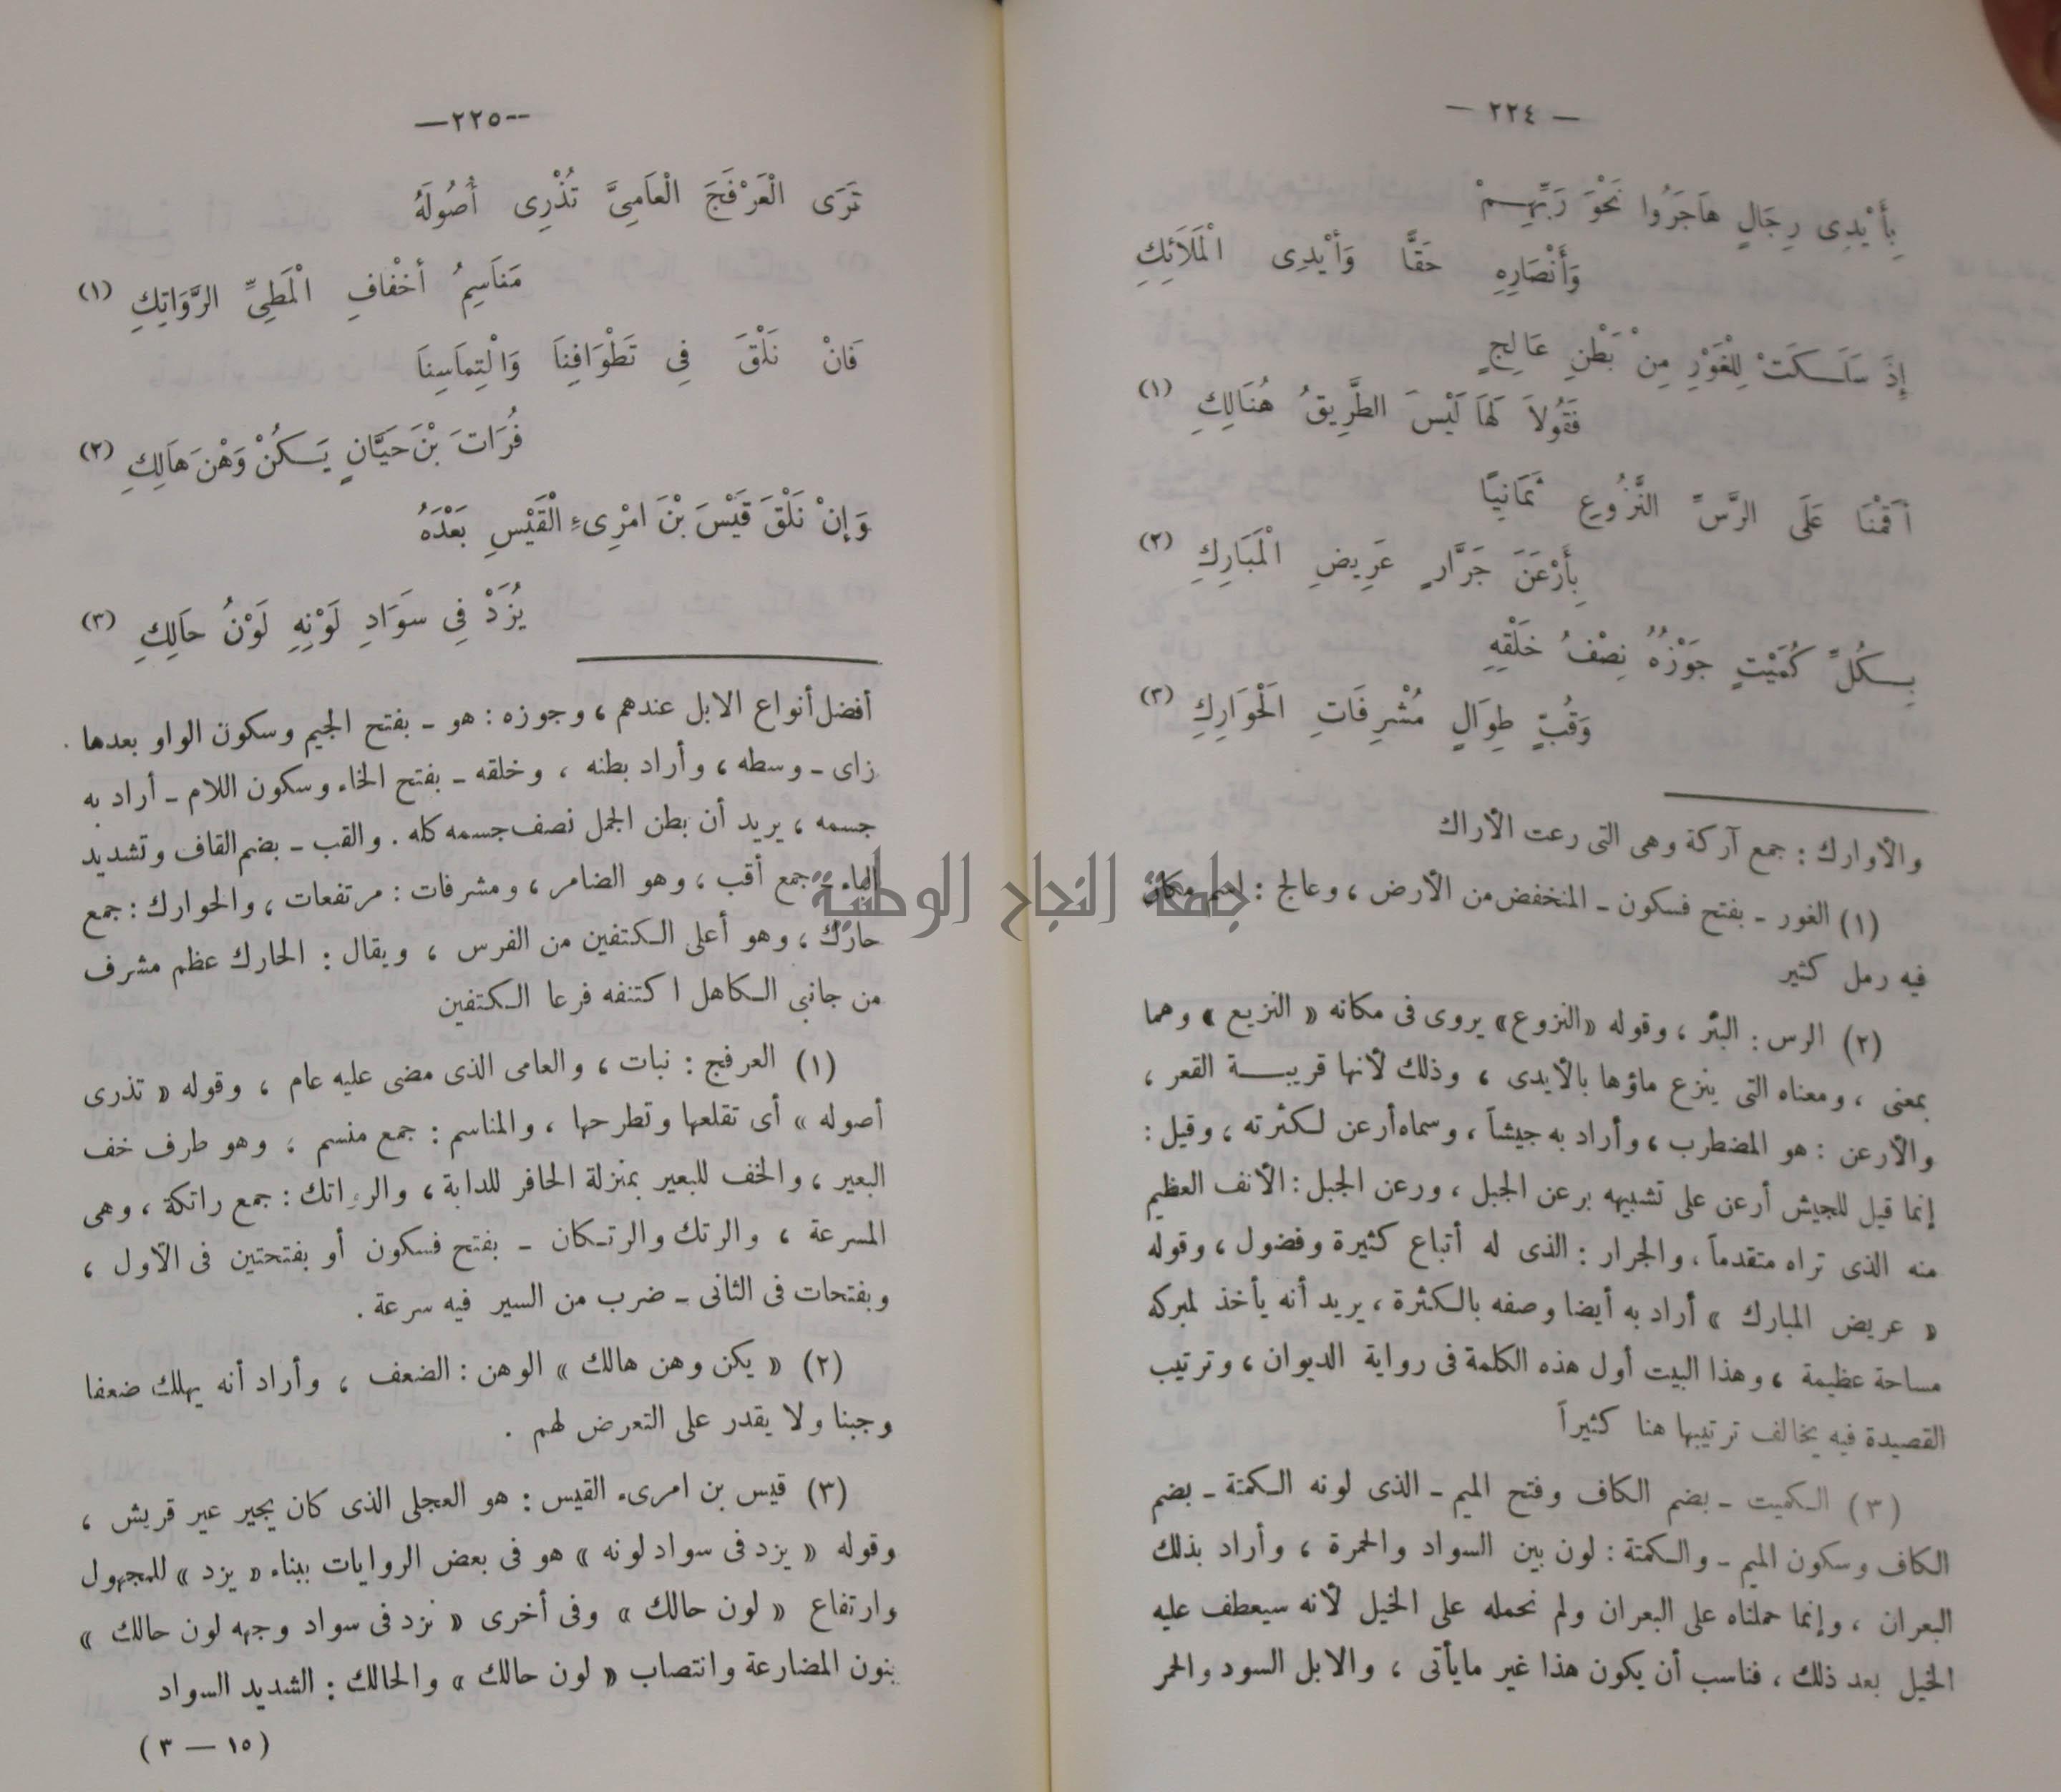 — ٢٢٤ —
بِأَيْدِى رِجَالٍ هاَجَرُوا نَحْوَ رَبِّهِمْ
وَأَنْصَارِهِ حَقًّا وَأَيْدِى الْمَلَائِكِ
إِذَ سَلَكَتْ لِلْغَوْرِ مِنْ بَطْنِ عَالِجٍ
فَقُولاَ لَهَا لَيْسَ الطَّرِيقُ هُنَالِكِ (١)
أَقَمْنَا عَلَى الرَّسِّ النَّزُوعِ ثَمَانِيًا
بِأَرْعَنَ جَرَّارٍ عَرِيضِ الْمَبَارِكِ (٢)
بِكُلِّ كُمَيْتٍ جَوْزُهُ نِصْفُ خَلْقِهِ
وَقُبٍّ طِوَالٍ مُشْرِفَاتِ الْحَوَارِكِ (٣)
والأوارك : جمع آركة وهى التى رعت الأراك
(١) الغور ـ بفتح فسكون ـ المنخفض من الأرض ، وعالج : اسم مكان
فيه رمل كثير
(٢) الرس : البئر ، وقوله «النزوع» يروى فى مكانه « النزيع » وهما
بمعنى ، ومعناه التى ينزع ماؤها بالأيدى ، وذلك لأنها قريبة القعر ،
والأرعن : هو المضطرب ، وأراد به جيشاً ، وسماه أرعن لكثرته ، وقيل :
إنما قيل للجيش أرعن على تشبيهه برعن الجبل ، ورعن الجبل : الأنف العظيم
منه الذى تراه متقدماً ، والجرار : الذى له أتباع كثيرة وفضول ، وقوله
« عريض المبارك » أراد به أيضا وصفه بالكثرة ، يريد أنه يأخذ لمبركه
مساحة عظيمة ، وهذا البيت أول هذه الكلمة فى رواية الديوان ، وترتيب
القصيدة فيه يخالف ترتيبها هنا كثيراً
(٣) الكميت ـ بضم الكاف وفتح الميم ـ الذى لونه الكمتة ـ بضم
الكاف وسكون الميم ـ والكمتة : لون بين السواد والحمرة ، وأراد بذلك
البعران ، وإنما حملناه على البعران ولم نحمله على الخيل لأنه سيعطف عليه
الخيل بعد ذلك ، فناسب أن يكون هذا غير مايأتى ، والابل السود والحمر
--٢٢٥—
تَرَى الْعَرْفَجَ الْعاَمِىَّ تُذْرِى أُصُولَهُ
مَناَسِمُ أخْفافِ الْمَطِىِّ الرَّوَاتِكِ (١)
فَانْ نَلْقَ فِى تَطْوَافِناَ وَالْتِماَسِناَ
فُرَاتَ بْنَ حَيَّانٍ يَكُنْ وَهْنَ هاَلِكِ (٢)
وَإنْ نَلْقَ قَيْسَ بْنَ امْرِىءِ الْقَيْسِ بَعْدَهُ
يُزَدْ فِى سَوَادِ لَوْنِهِ لَوْنُ حاَلِكِ (٣)
أفضل أنواع الابل عندهم ، وجوزه : هو ـ بفتح الجيم وسكون الواو بعدها
زاى ـ وسطه ، وأراد بطنه ، وخلقه ـ بفتح الخاء وسكون اللام ـ أراد به
جسمه ، يريد أن بطن الجمل نصف جسمه كله . والقب ـ بضم القاف وتشديد
الباء ـ جمع أقب ، وهو الضامر ، ومشرفات : مرتفعات ، والحوارك : جمع
حارك ، وهو أعلى الكتفين من الفرس ، ويقال : الحارك عظم مشرف
من جانبى الكاهل اكتنفه فرعا الكتفين
(١) العرفج : نبات ، والعامى الذى مضى عليه عام ، وقوله « تذرى
أصوله » أى تقلعها وتطرحها ، والمناسم : جمع منسم ، وهو طرف خف
البعير ، والخف للبعير بمنزلة الحافر للدابة ، والرواتك : جمع راتكة ، وهى
المسرعة ، والرتك والرتكان ـ بفتح فسكون أو بفتحتين فى الأول ،
وبفتحات فى الثانى ـ ضرب من السير فيه سرعة .
(٢) « يكن وهن هالك » الوهن : الضعف ، وأراد أنه يهلك ضعفا
وجبنا ولا يقدر على التعرض لهم .
(٣) قيس بن امرىء القيس : هو العجلى الذى كان يجير عير قريش ،
وقوله « يزد فى سواد لونه » هو فى بعض الروايات ببناء « يزد » للمجهول
وارتفاع « لون حالك » وفى أخرى « نزد فى سواد وجهه لون حالك »
بنون المضارعة وانتصاب « لون حالك » والحالك : الشديد السواد
(١٥ — ٣)
جامعة النجاح الوطنية